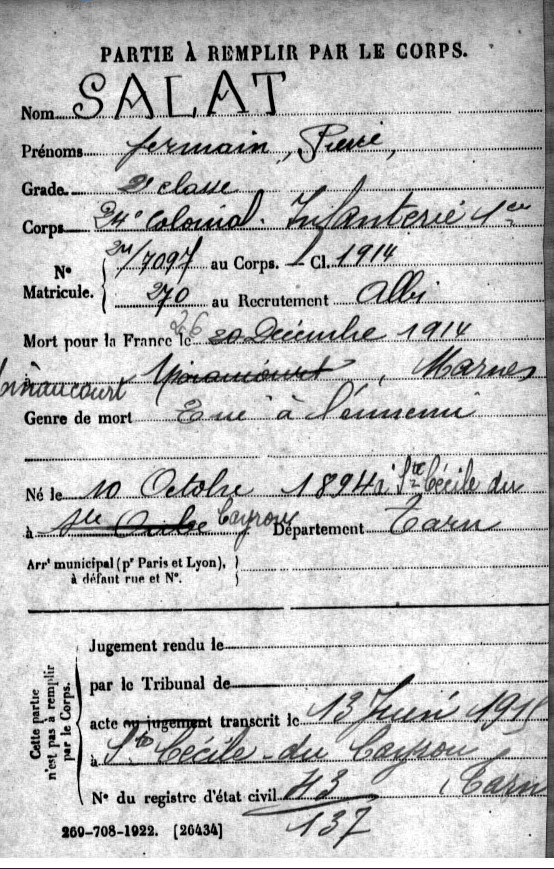 PARTIE À REMPLIR PAR LE CORPS.
Nom SALAT
Prénoms Germain, Pierre,
Grade 2e classe
Corps 24e Colonial. Infanterie 1ere
N° Matricule. { 2u/7097 au Corps. — Cl. 1914
270 au Recrutement Albi
Mort pour la France le 26 20 Décembre 1914
à Marnes
Genre de mort Tué à l'ennemi
Né le 10 Octobre 1894 à Ste Cécile du
à Cayrou Département Tarn
Arrt municipal (pr Paris et Lyon), à défaut rue et N°.
Cette partie n'est pas à remplir par le Corps.
Jugement rendu le
par le Tribunal de
acte ou jugement transcrit le 13 Juin 1915
à Ste Cécile-du Cayrou
N° du registre d'état civil 43 (Tarn
137
269-708-1922. [26434]